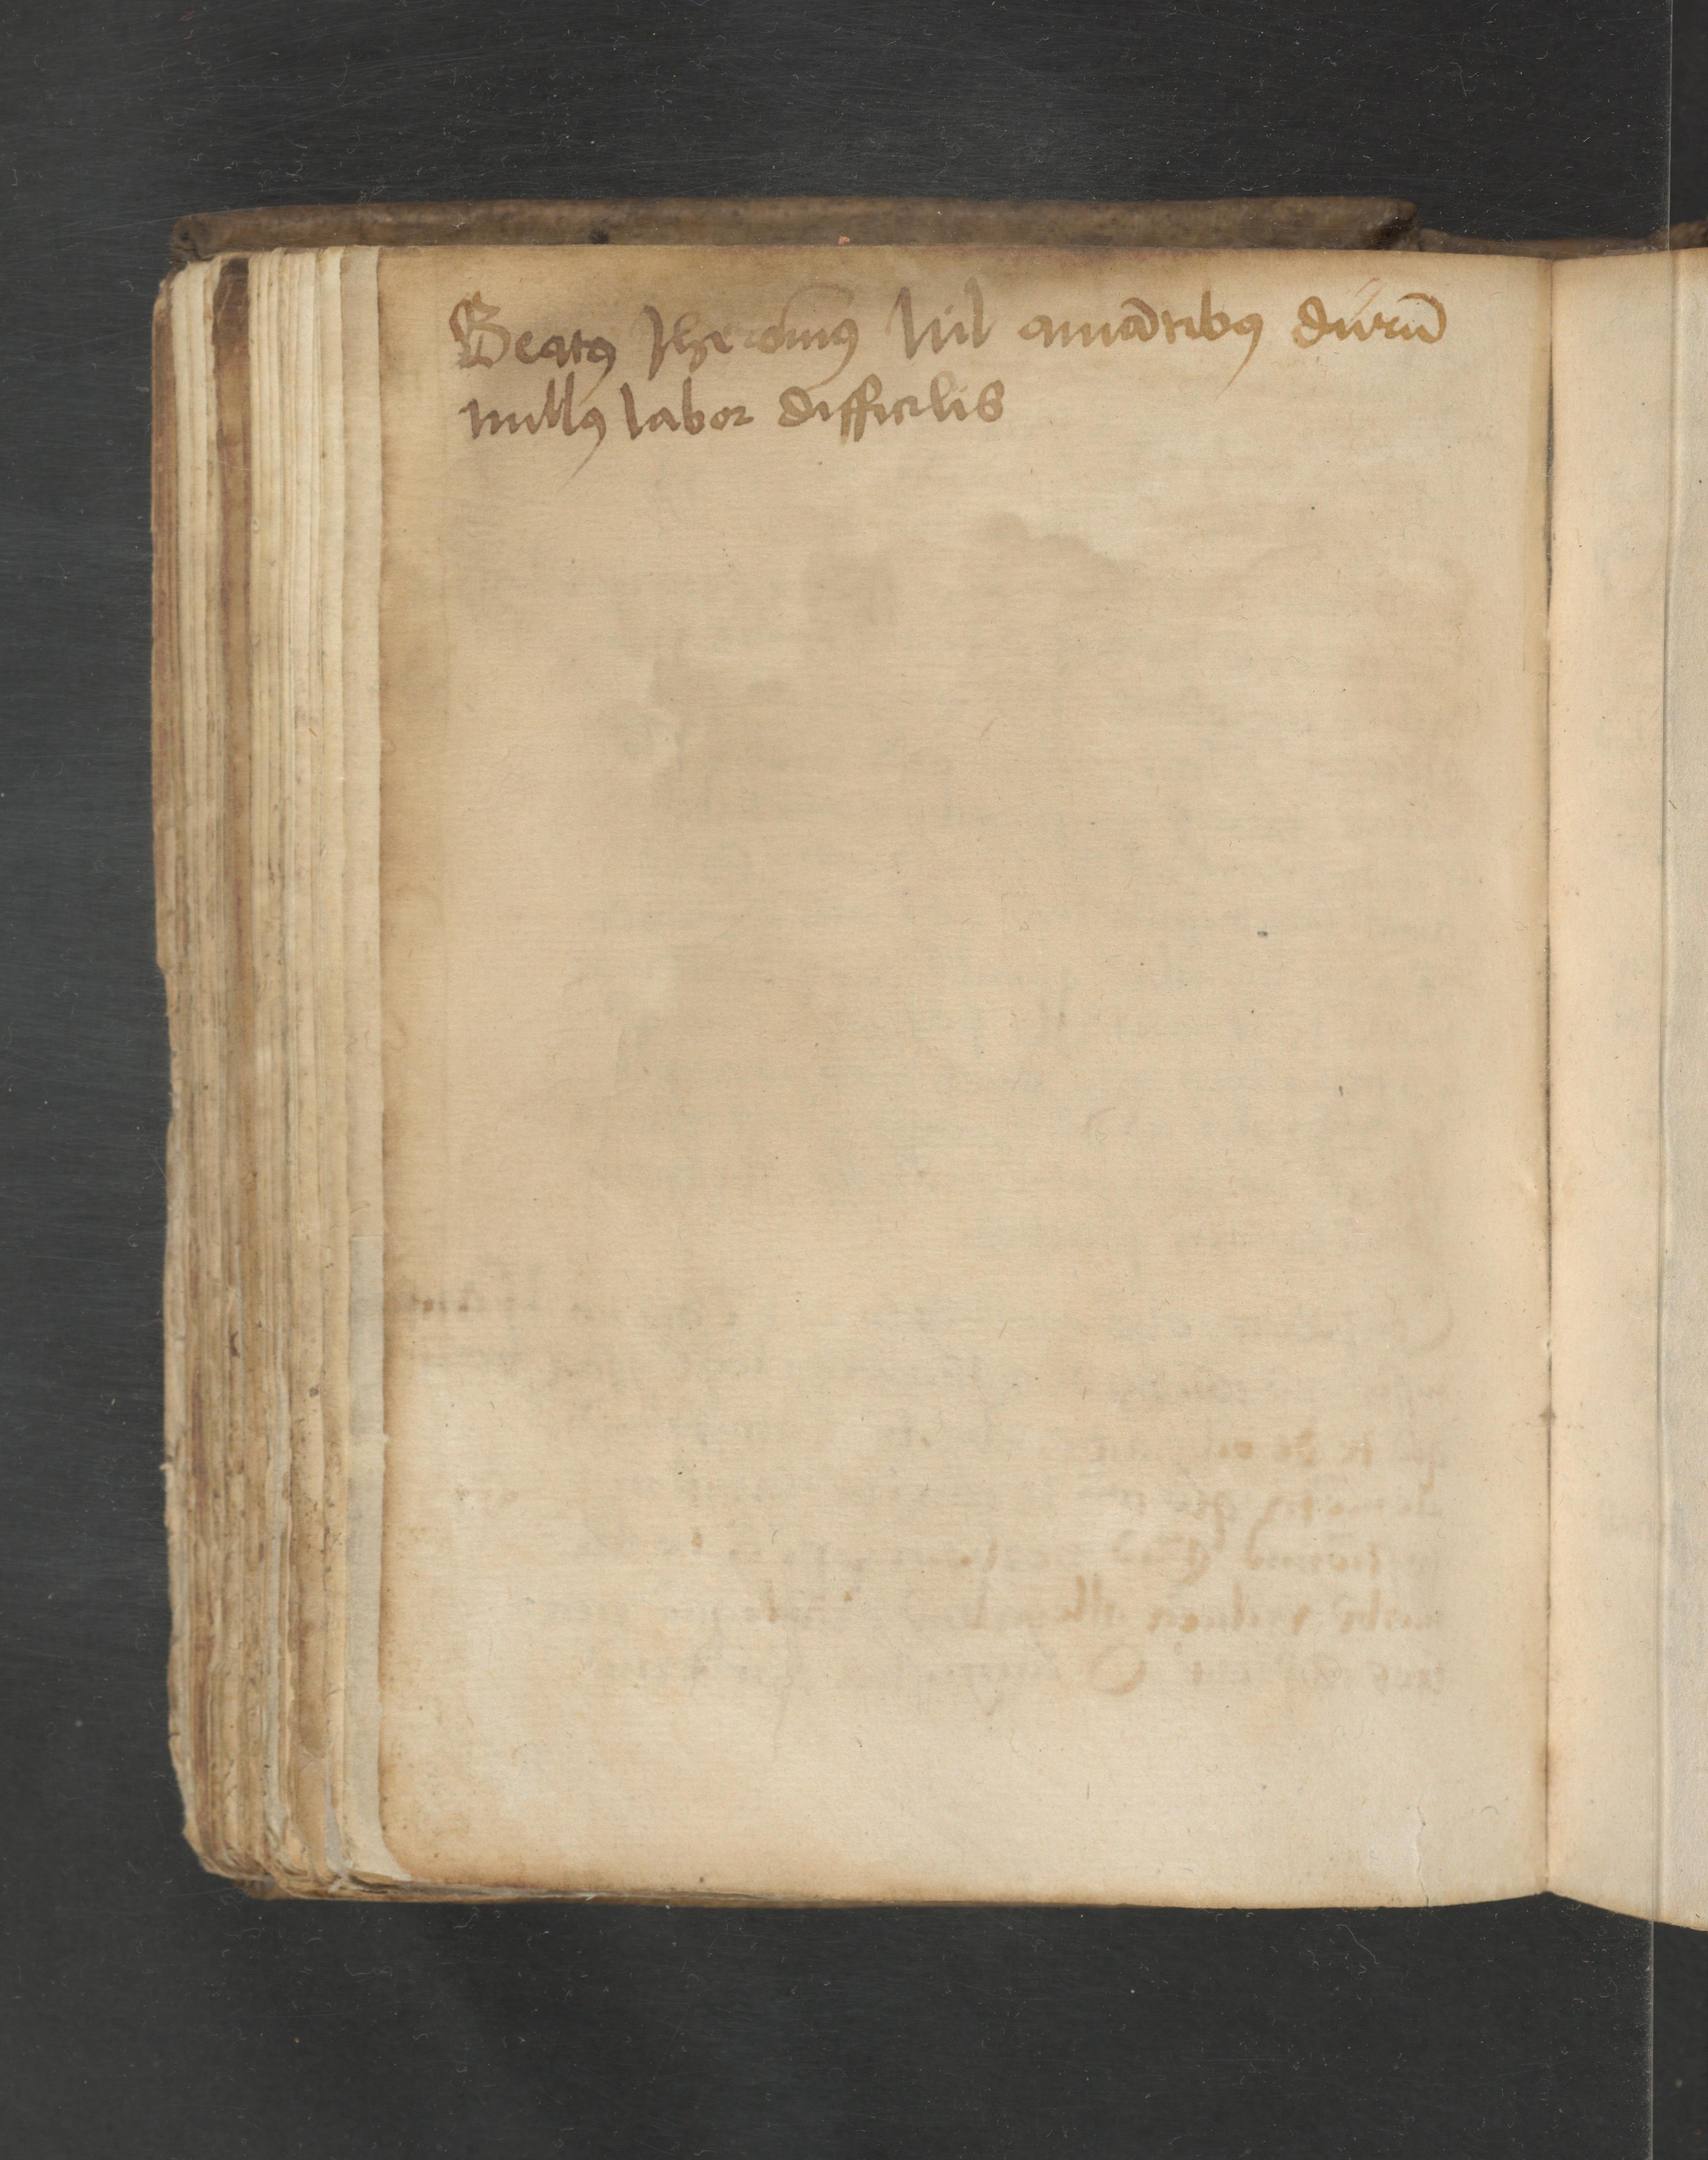 Beatꝰ Jheronimꝰ Nil amātibꝰ durū
nullꝰ labor difficilis